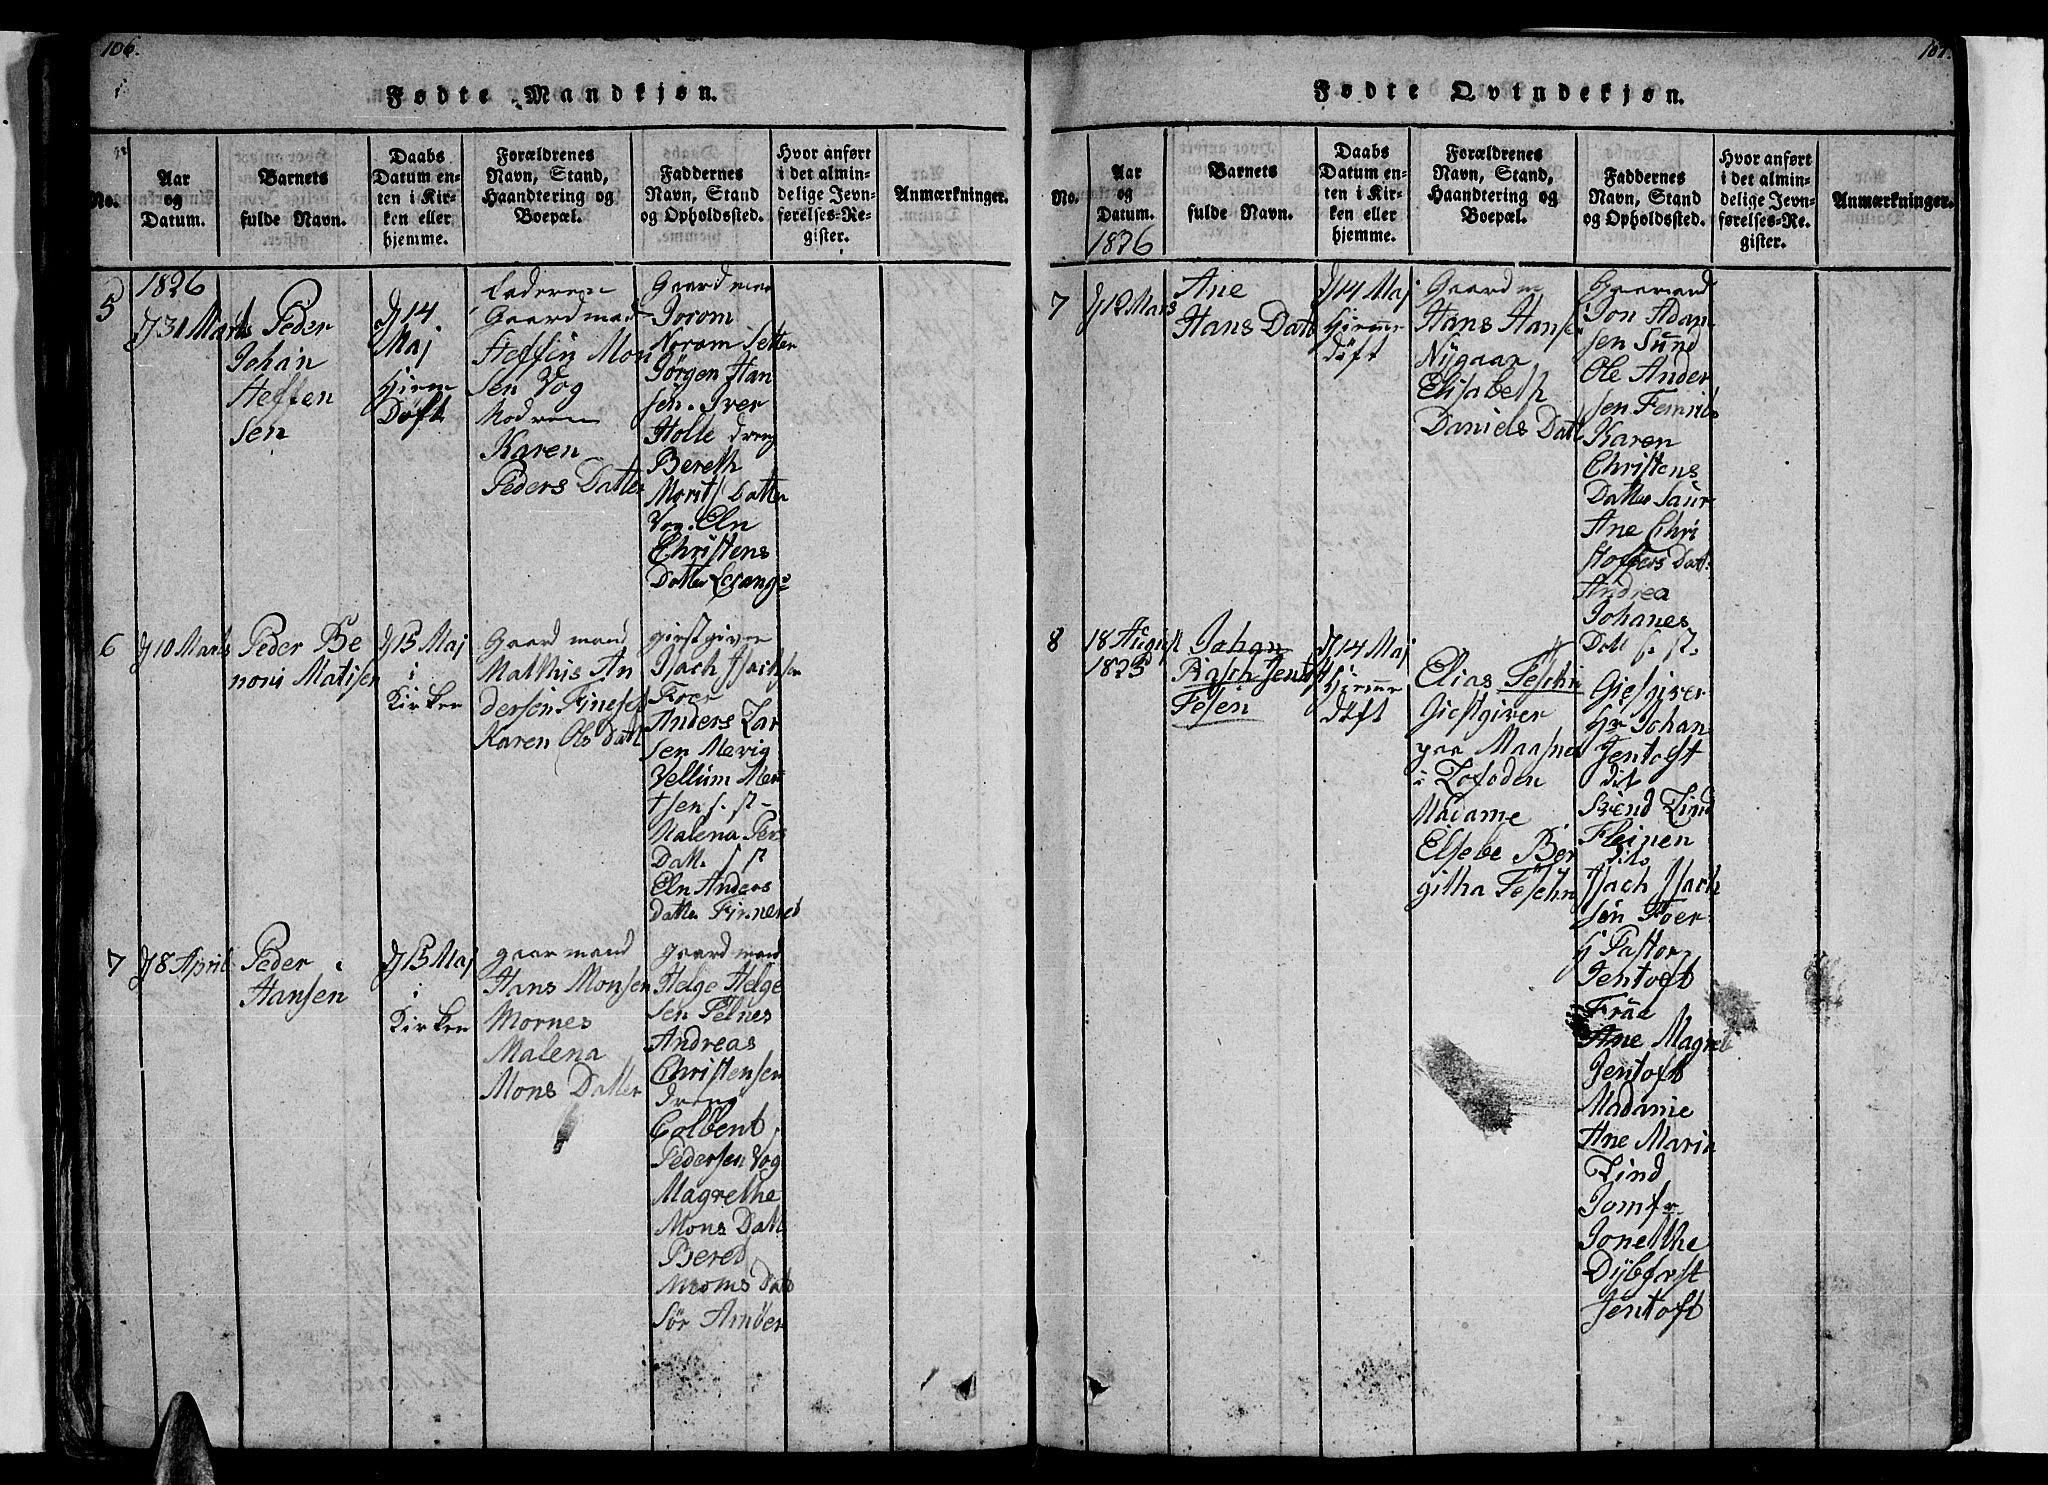 106.
Fødte Mandkjøn.
No.
Aar
og
Datum.
Barnets
fulde Navn.
Daabs
Datum en-
ten i Kir-
ken eller
hjemme.
Forældrenes
Navn, Stand,
Haandtering og
Boepæl.
Faddernes
Navn, Stand
og Opholdssted.
Hvor anført
i det almin-
delige Jevn-
førelses-Re-
gister.
Anmærkninger.
5
1826
d 31 Marts
Peder
Johan
Steffen
sen
d 14
Maj
hjem
Døft
Faderen
Gaardmand
Steffin Mon
sen Vog
Modren
Karen
Peders Datter
Gaardman
Jorom
Noram Setter
Jørgen Han
sen. Iver
Holle dreng
Bereth
Morits Datter
Vog. Eln
Christens
Datter
6
d 10 Marts
Peder Be
noni Matisen
d 15 Maj
i
Kirken
Gaardmand
Mathis An
dersen Fineset
Karen Ols Datt
giestgiver
Isach Isachsen
Foer
Anders Lar
sen
Vellum Mor
tsen s. st
Malena Pers
Datt. s st
Eln Anders
Datte Finneset
7
d 8 April
Peder
Hansen
d 15 Maj
i
Kirken
gaarmand
Hans Monsen
Mornes
Malena
Mons Datter
gaardmand
Helge Helge
sen Felnes
Andreas
Christensen
dreng
Colbent
Pedersen Vog
Magrethe
Mons Datt
Beret
Datt
Sør Arnøer
107.
Fødte Qvindekjøn.
No.
Aar
og
Datum.
1826
Barnets
fulde Navn.
Daabs
Datum en-
ten i Kir-
ken eller
hjemme.
Forældrenes
Navn, Stand,
Haandtering og
Boepæl.
Faddernes
Navn, Stand
og Opholdssted.
Hvor anført
i det almin-
delige Jevn-
førelses-Re-
gister.
Anmærkninger.
7
d 12 Mars
Ane
Hans Datt
d 14 Maj
hjemme
døft
Gaardm
Hans Hansen
Nygaar
Elisabeth
Daniels Datt
Gaarmand
Jon Adam
sen Sund
Ole Ander
sen Femris
Karen
Christens
Datter Saur
Ane Chri
stoffers Datt.
Andrea
Johanes
Datt s. st.
8
18 August
1825
Johan
Rasch Jentof
Fesen
d 14 Maj
hjemme
døft
Elias Feschn
Giestgiver
paa Maasnes
i Lofoden
Madame
Elsebe Bir
githa Feschn
Giestgiver
Hr Johan
Jentoft
dito
Svend Lind
Fleinen
dito
Isach Isach
sen Foer
H Pastor
Jentoft
Frue
Ane Magret
Jentoft
Madame
Ane Maria
Lind
Jomfr
Jonethe
Dybfæst
Jentoft